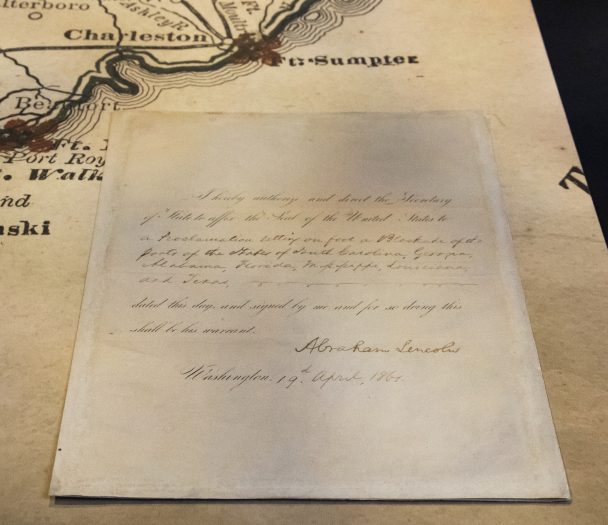 lterboro
Ashley R.
Ft.
Moult
Charleston
Ft. Sumpter
Beaufort
Ft.
Port Roy
. Walk
nd
nski
T
I hereby authorize and direct the Secretary
of State to affix the Seal of the United States to
a Proclamation setting on foot a Blockade of the
ports of the States of South Carolina, Georgia,
Alabama, Florida, Mississippi, Louisiana,
and Texas,
dated this day, and signed by me and for so doing this
shall be his warrant.
Abraham Lincoln
Washington, 19th April, 1861.